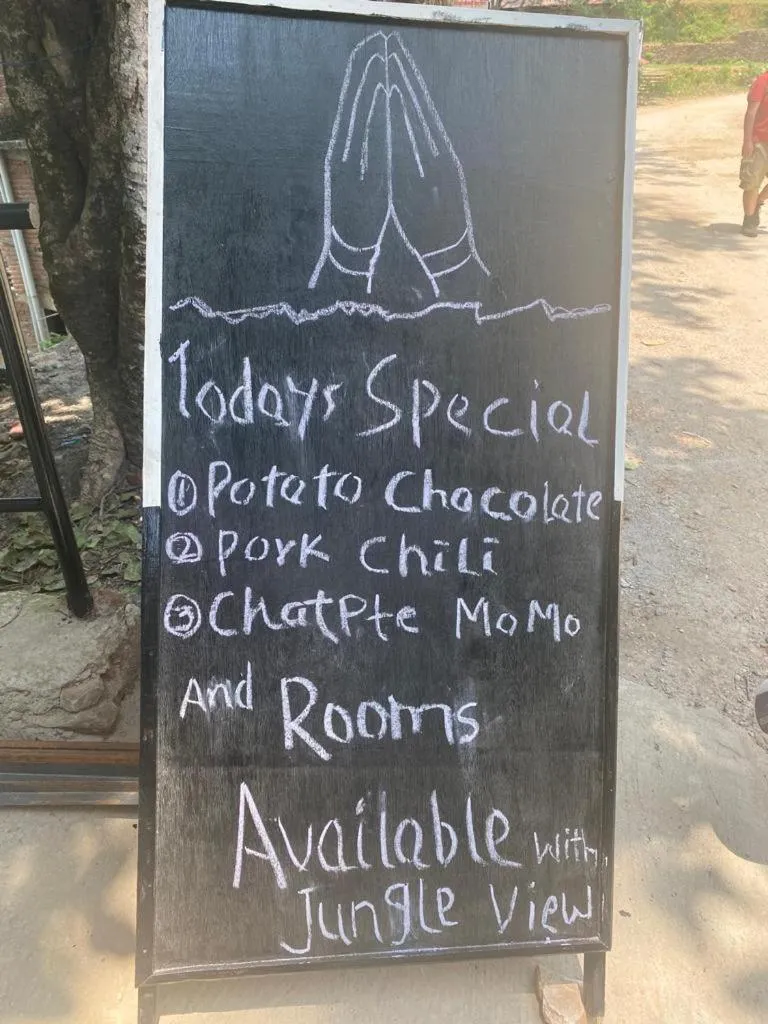 Todays Special
① Potato Chocolate
② Pork Chili
③ Chatpte MoMo
And Rooms
Available with
Jungle View